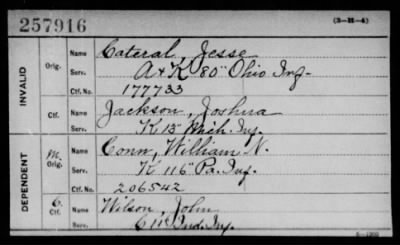 257916 (3-H-4)
INVALID
Orig. Name Cateral, Jesse
Serv. A & K 80" Ohio Inf.
Ctf. No. 177733
Ctf. Name Jackson, Joshua
Serv. K 13" Mich. Inf.
DEPENDENT
M. Orig. Name Conn, William N.
Serv. K 116" Pa. Inf.
Ctf. No. 206542
C. Ctf. Name Wilson, John
Serv. Ind. Inf.